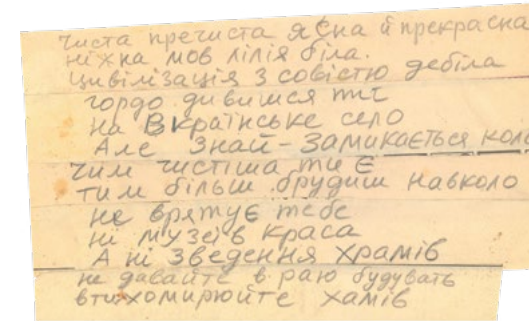 чиста пречиста ясна й прекрасна
ніжна мов лілія біла.
цивілізація з совістю дебіла
гордо дивишся ти
на Вкраїнське село
Але знай - замикається коло
чим чистіша ти є
тим більш брудиш навколо
не врятує тебе
ні музеїв краса
А ні зведення храмів
не давайте в раю будувать
втихомирюйте хамів